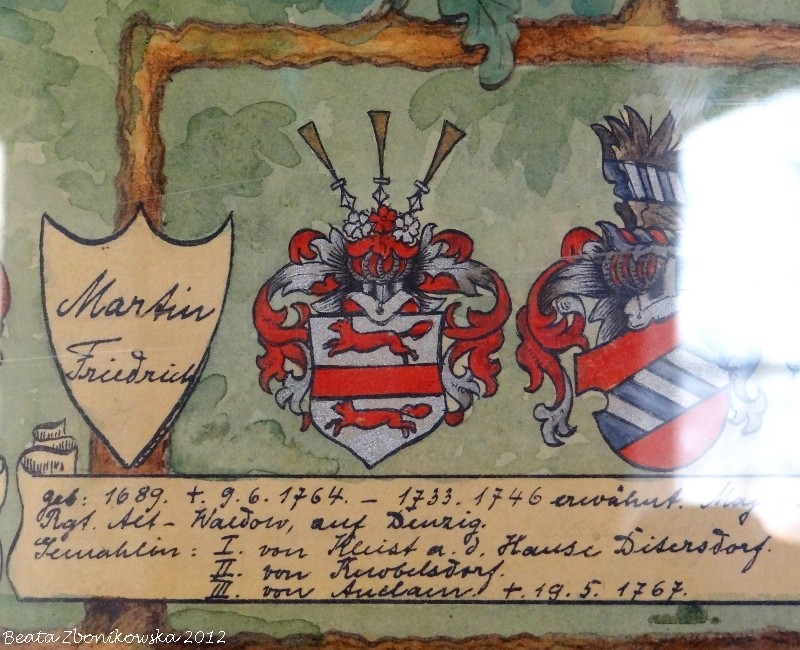 Martin
Friedrich
geb: 1689. †. 9. 6. 1764. – 1733. 1746 erwähnt. Maj
Rgt. Alt-Waldow, auf Denzig.
Gemahlin: I. von Kleist a. d. Hause Ditersdorf.
II. von Knobelsdorf.
III. von Anclam. †. 19. 5. 1767.
Beata Zbonikowska 2012